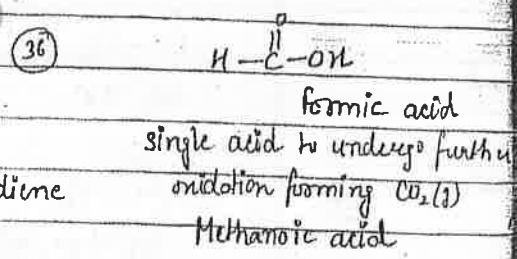 36
O
H-C-OH
formic acid
single acid to undergo further
diene oxidation forming CO₂(g)
Methanoic acid